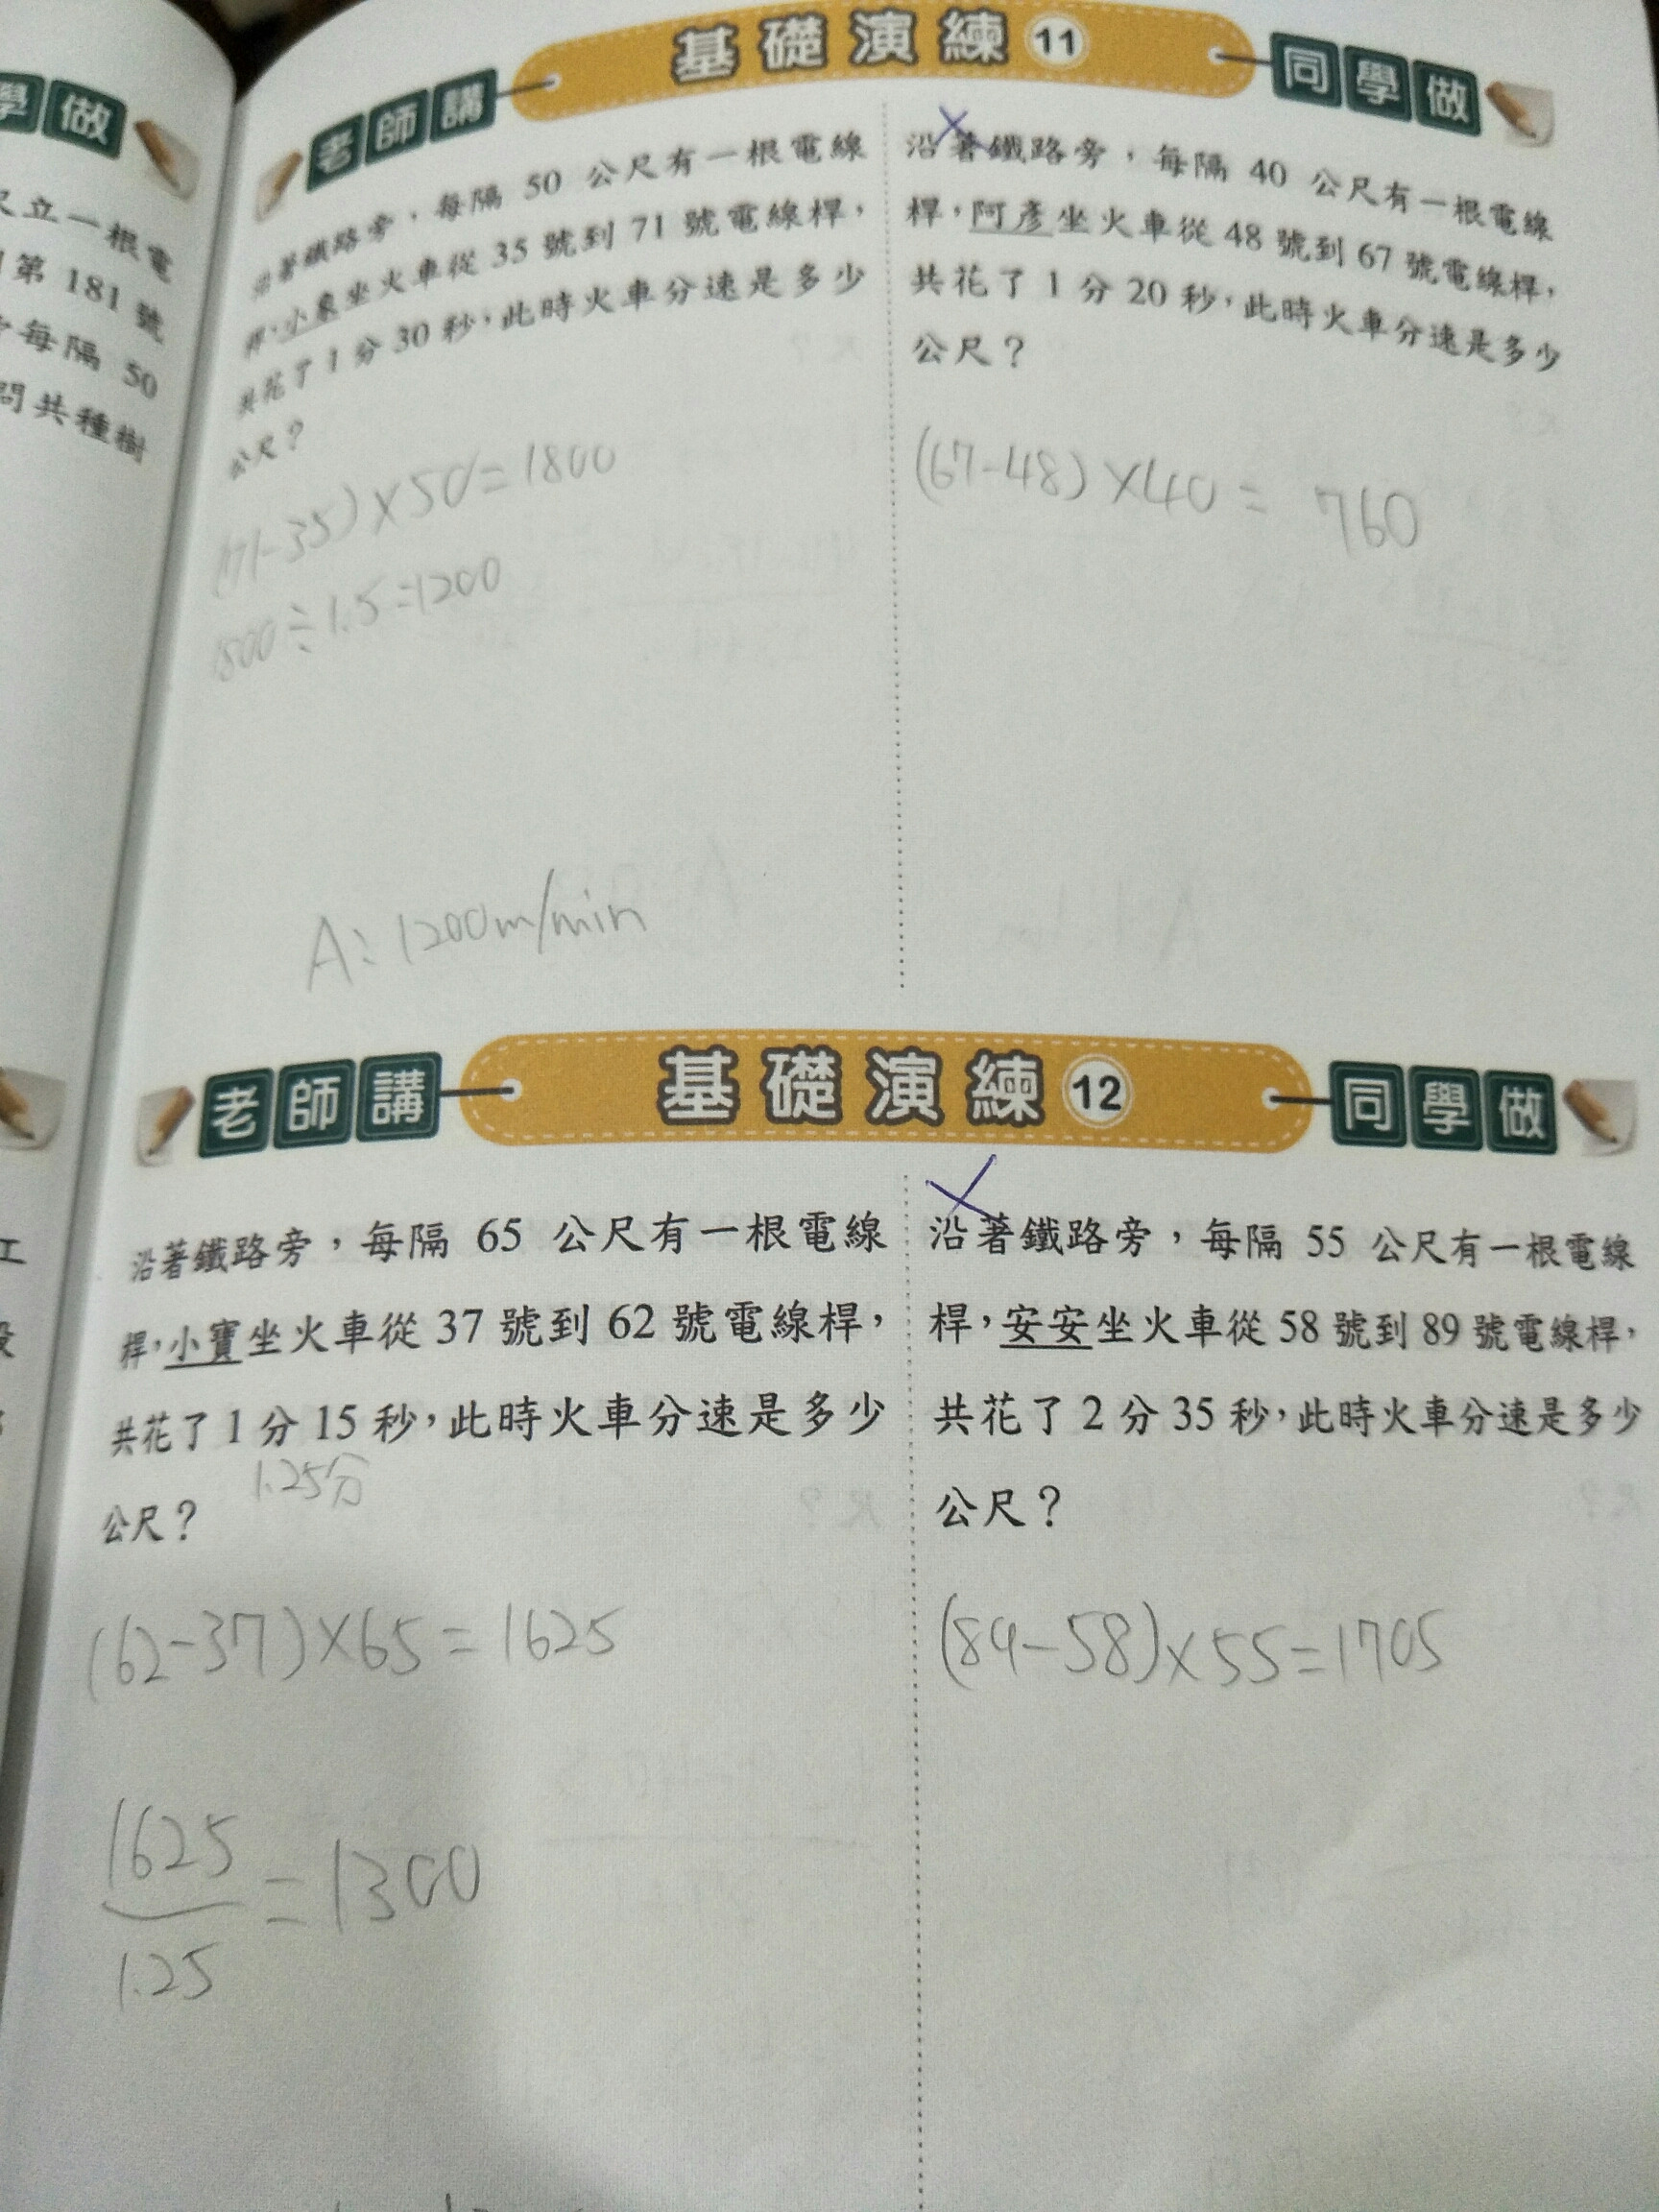 學做
尺立一根電
第 181 號
每隔 50
問共種樹
基礎演練 11
老師講
同學做
沿著鐵路旁，每隔 50 公尺有一根電線
桿，小泉坐火車從 35 號到 71 號電線桿，
共花了 1 分 30 秒，此時火車分速是多少
公尺？
(71-35)×50=1800
1800÷1.5=1200
A：1200m/min
沿著鐵路旁，每隔 40 公尺有一根電線
桿，阿彥坐火車從 48 號到 67 號電線桿，
共花了 1 分 20 秒，此時火車分速是多少
公尺？
(67-48)×40= 760
基礎演練 12
老師講
同學做
沿著鐵路旁，每隔 65 公尺有一根電線
桿，小寶坐火車從 37 號到 62 號電線桿，
共花了 1 分 15 秒，此時火車分速是多少
1.25分
公尺？
(62-37)×65=1625
1625
=1300
1.25
沿著鐵路旁，每隔 55 公尺有一根電線
桿，安安坐火車從 58 號到 89 號電線桿，
共花了 2 分 35 秒，此時火車分速是多少
公尺？
(89-58)×55=1705